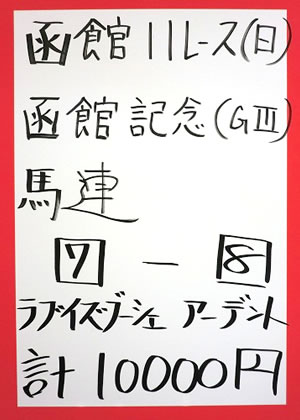 函館11レース(日)
函館記念(GⅢ)
馬連
7 - 8
ラブイズブーシェ アーデント
計10000円